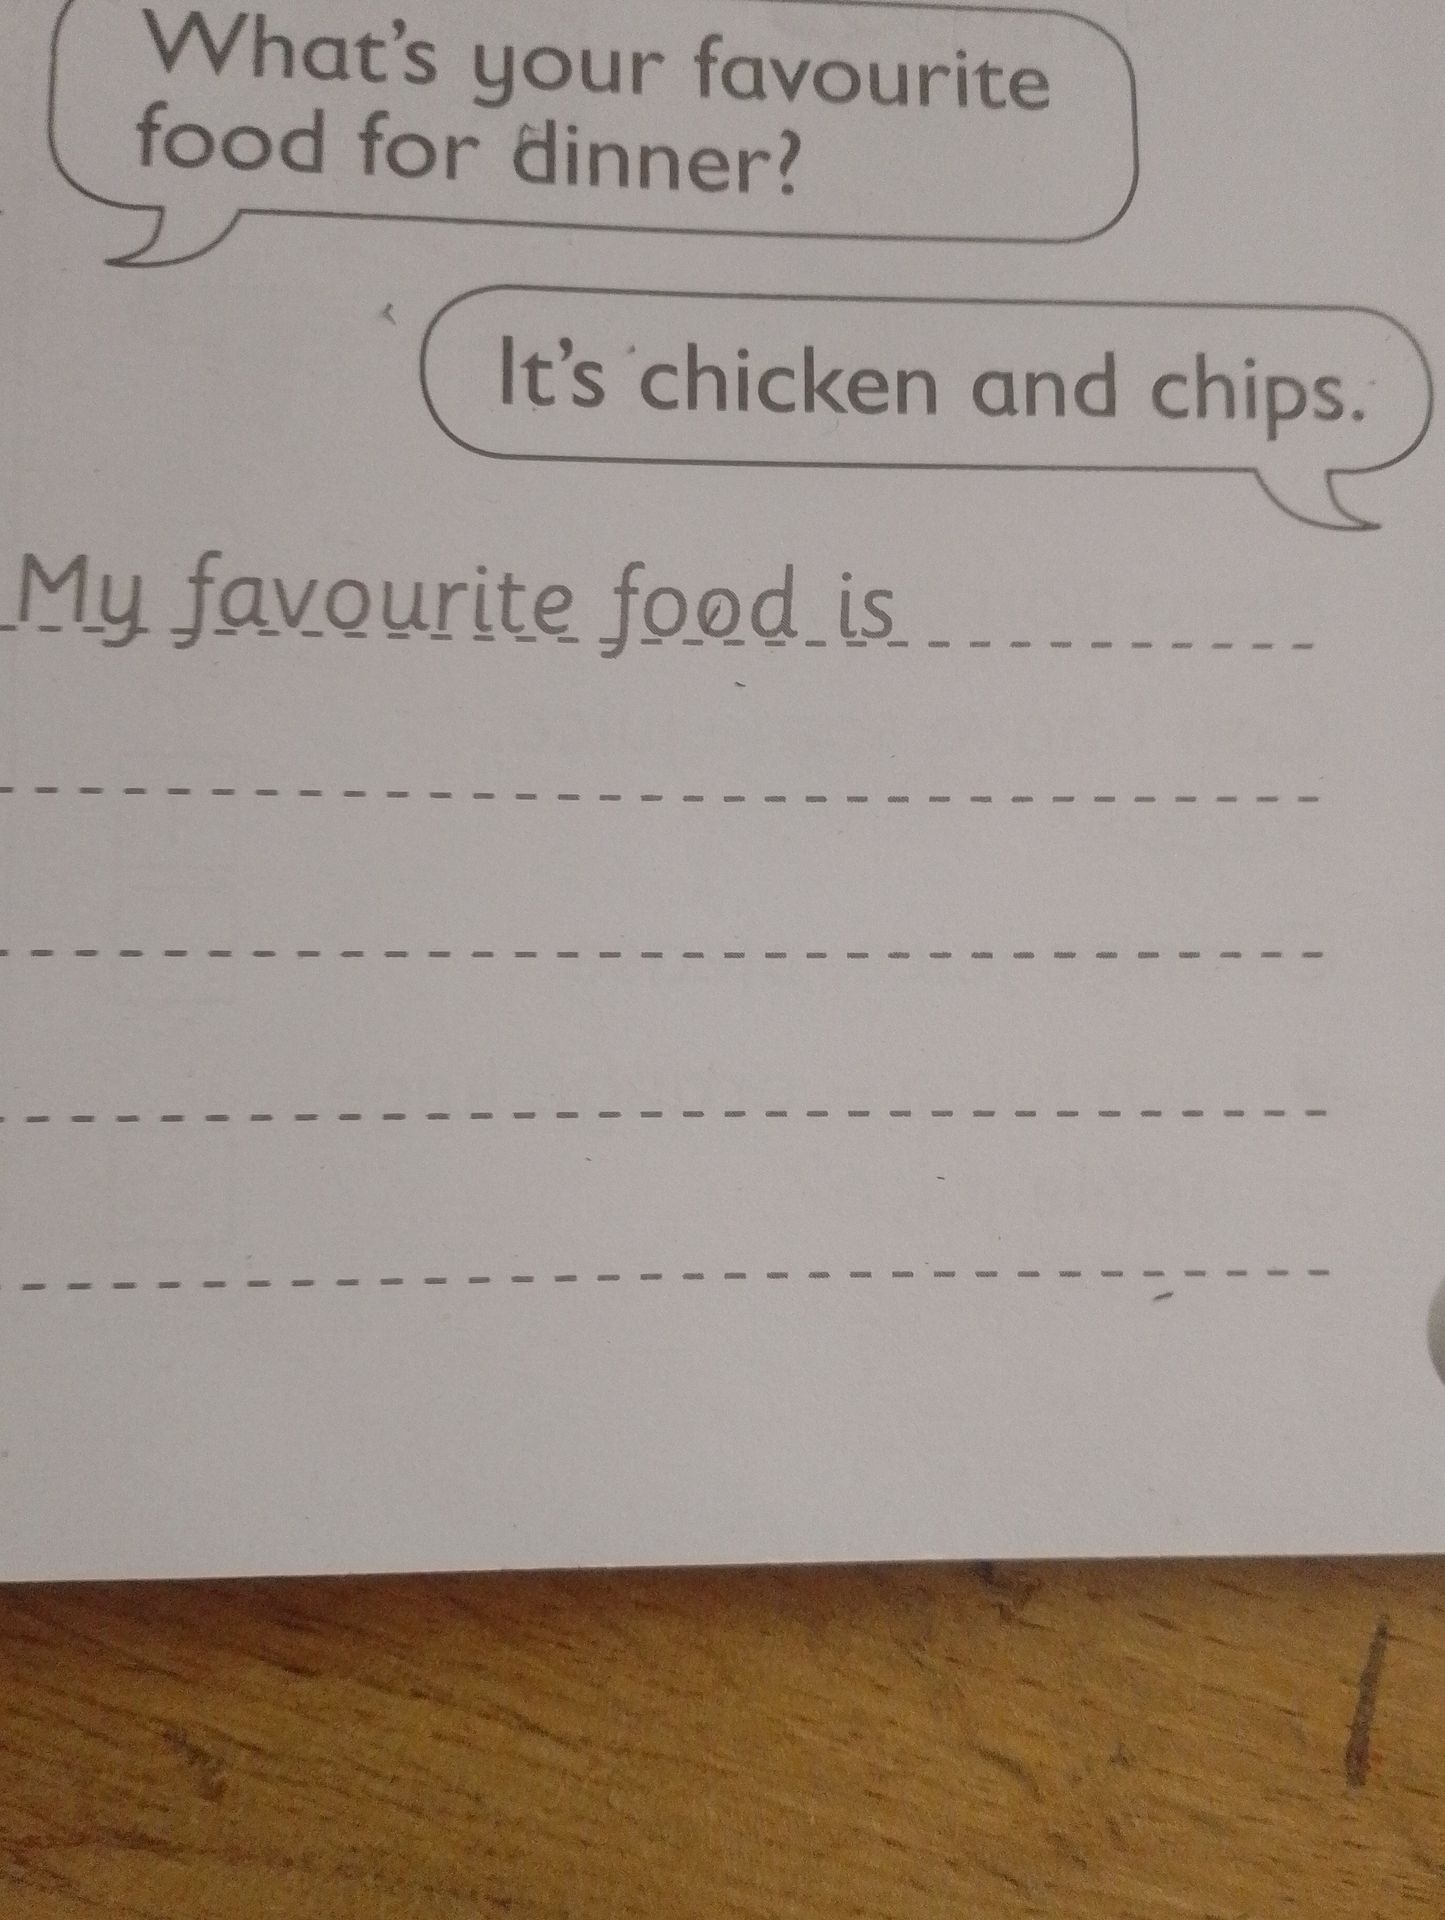 What's your favourite
food for dinner?
It's chicken and chips.
My favourite food is